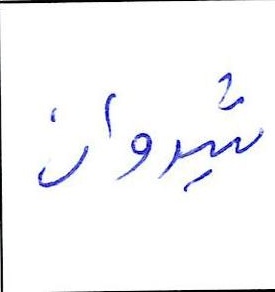 شيروان